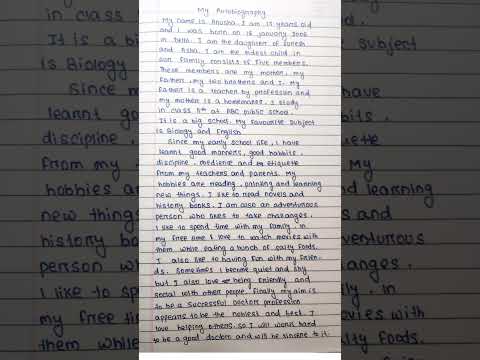 My Autobiography
My name is Anusha. I am years old
and I was born on 16 january
in Delhi. I am the daughter of Suresh
and Asha. I am the eldest child in
our family consists of five members.
These members are my mother, my
father, my two brothers and I. My
father is a teacher by profession and
my mother is a homemaker. I study
in class at ABC public school.
It is a big school. My favourite subject
is Biology and English
Since my early school life, I have
learnt good manners, good habbits,
discipline, obedience and etiquette
from my teachers and parents. My
hobbies are reading, painting and learning
new things. I like to read novels and
history books. I am also an adventurous
person who likes to take challanges.
I like to spend time with my family. in
my free time I love to watch movies with
them while eating a bunch of tasty foods.
I also like to having fun with my frien-
ds. Sometimes I become quiet and shy
but I also love being friendly and
social with other people. finally my aim is
to be a successful Doctors profession
appears to be the noblest and best. I
love helping others. so I will work hard
to be a good doctor and will be sincere to it.